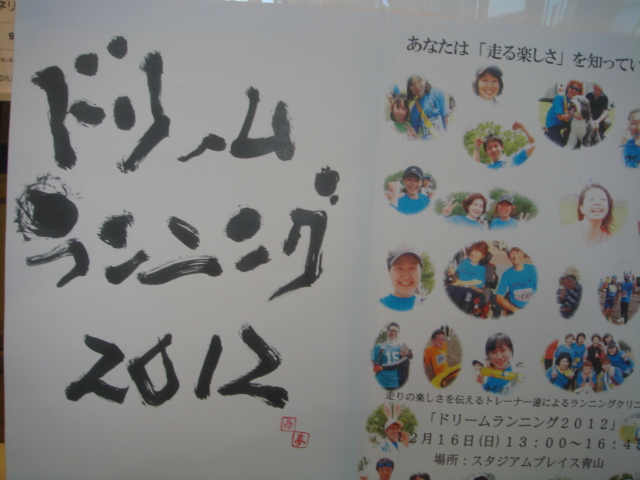 ドリーム
ランニング
2012
あなたは「走る楽しさ」を知ってい
走りの楽しさを伝えるトレーナー達によるランニングクリニ
「ドリームランニング2012」
2月16日(日)13:00〜16:4
場所：スタジアムプレイス青山